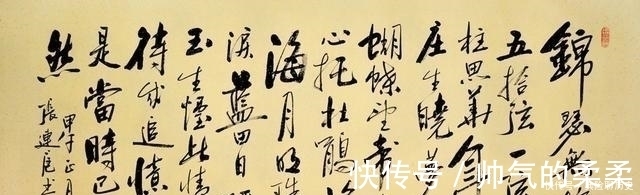 錦瑟無
五拾弦一
柱思華年
庄生曉夢
蝴蝶望帝
心托杜鵑
海月明珠
淚藍田日
玉生煙此情
待成追憶
是當時已
然
甲午正月
張連
快传号 / 帅气的柔柔